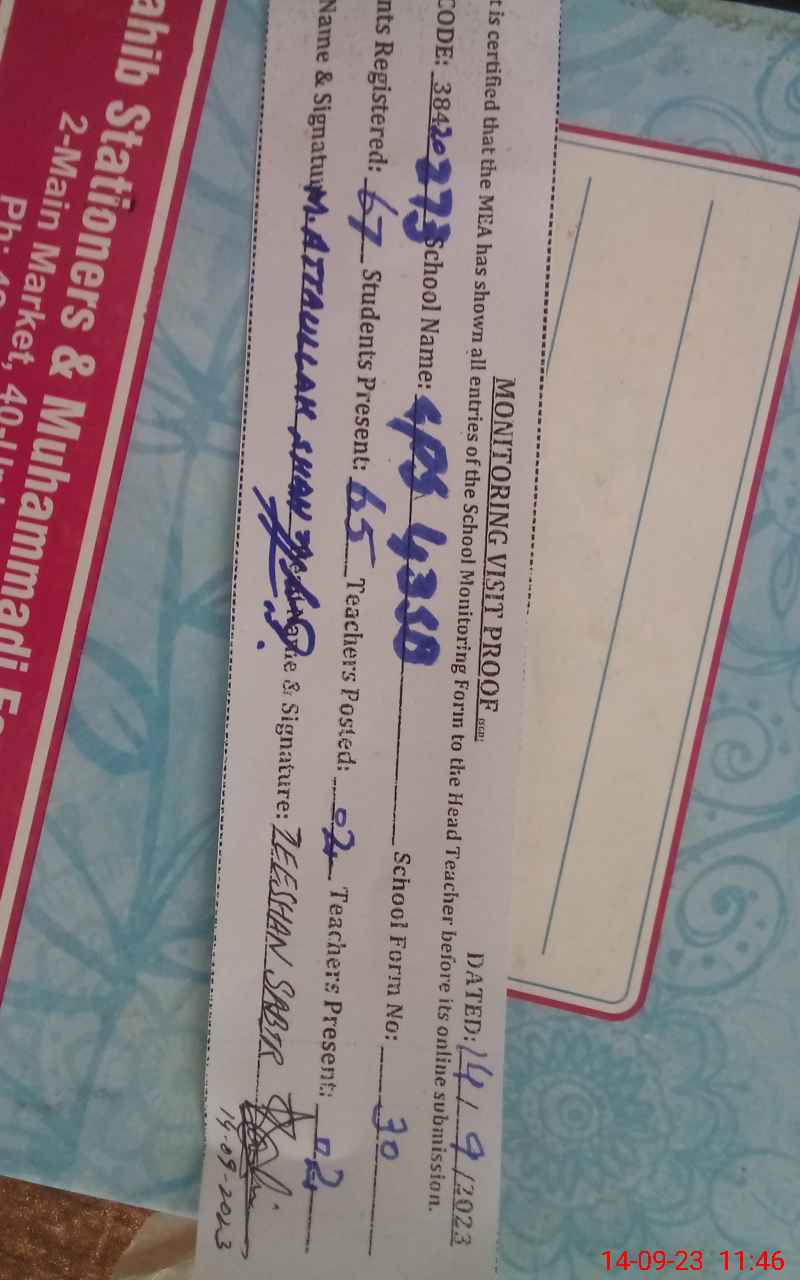 MONITORING VISIT PROOF
DATED: 14 / 9 /2023
t is certified that the MEA has shown all entries of the School Monitoring Form to the Head Teacher before its online submission.
CODE: 38420273 School Name: GPS School Form No: 30
nts Registered: 67 Students Present: 65 Teachers Posted: 02 Teachers Present: 02
Name & Signatu M. ATTAULLAH KHAN & Signature: ZEESHAN SABIR
14-09-2023
ahib Stationers & Muhammadi
2-Main Market, 40-
Ph:
14-09-23 11:46